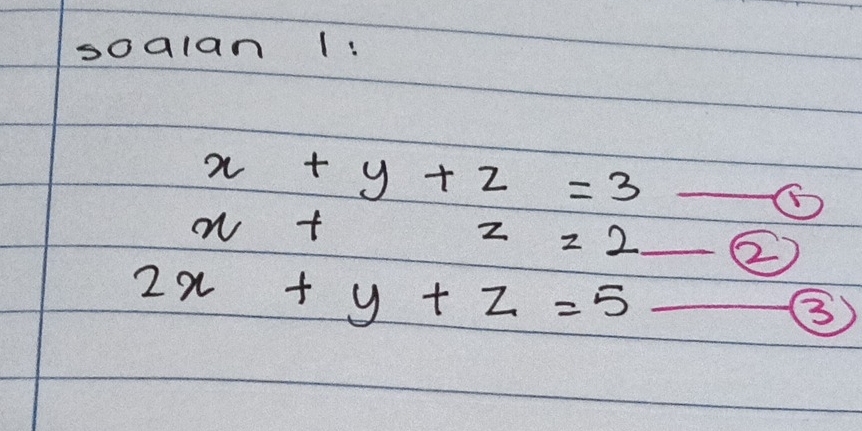 soalan 1:
x + y + z = 3 —— ①
x + z = 2 —— ②
2x + y + z = 5 —— ③